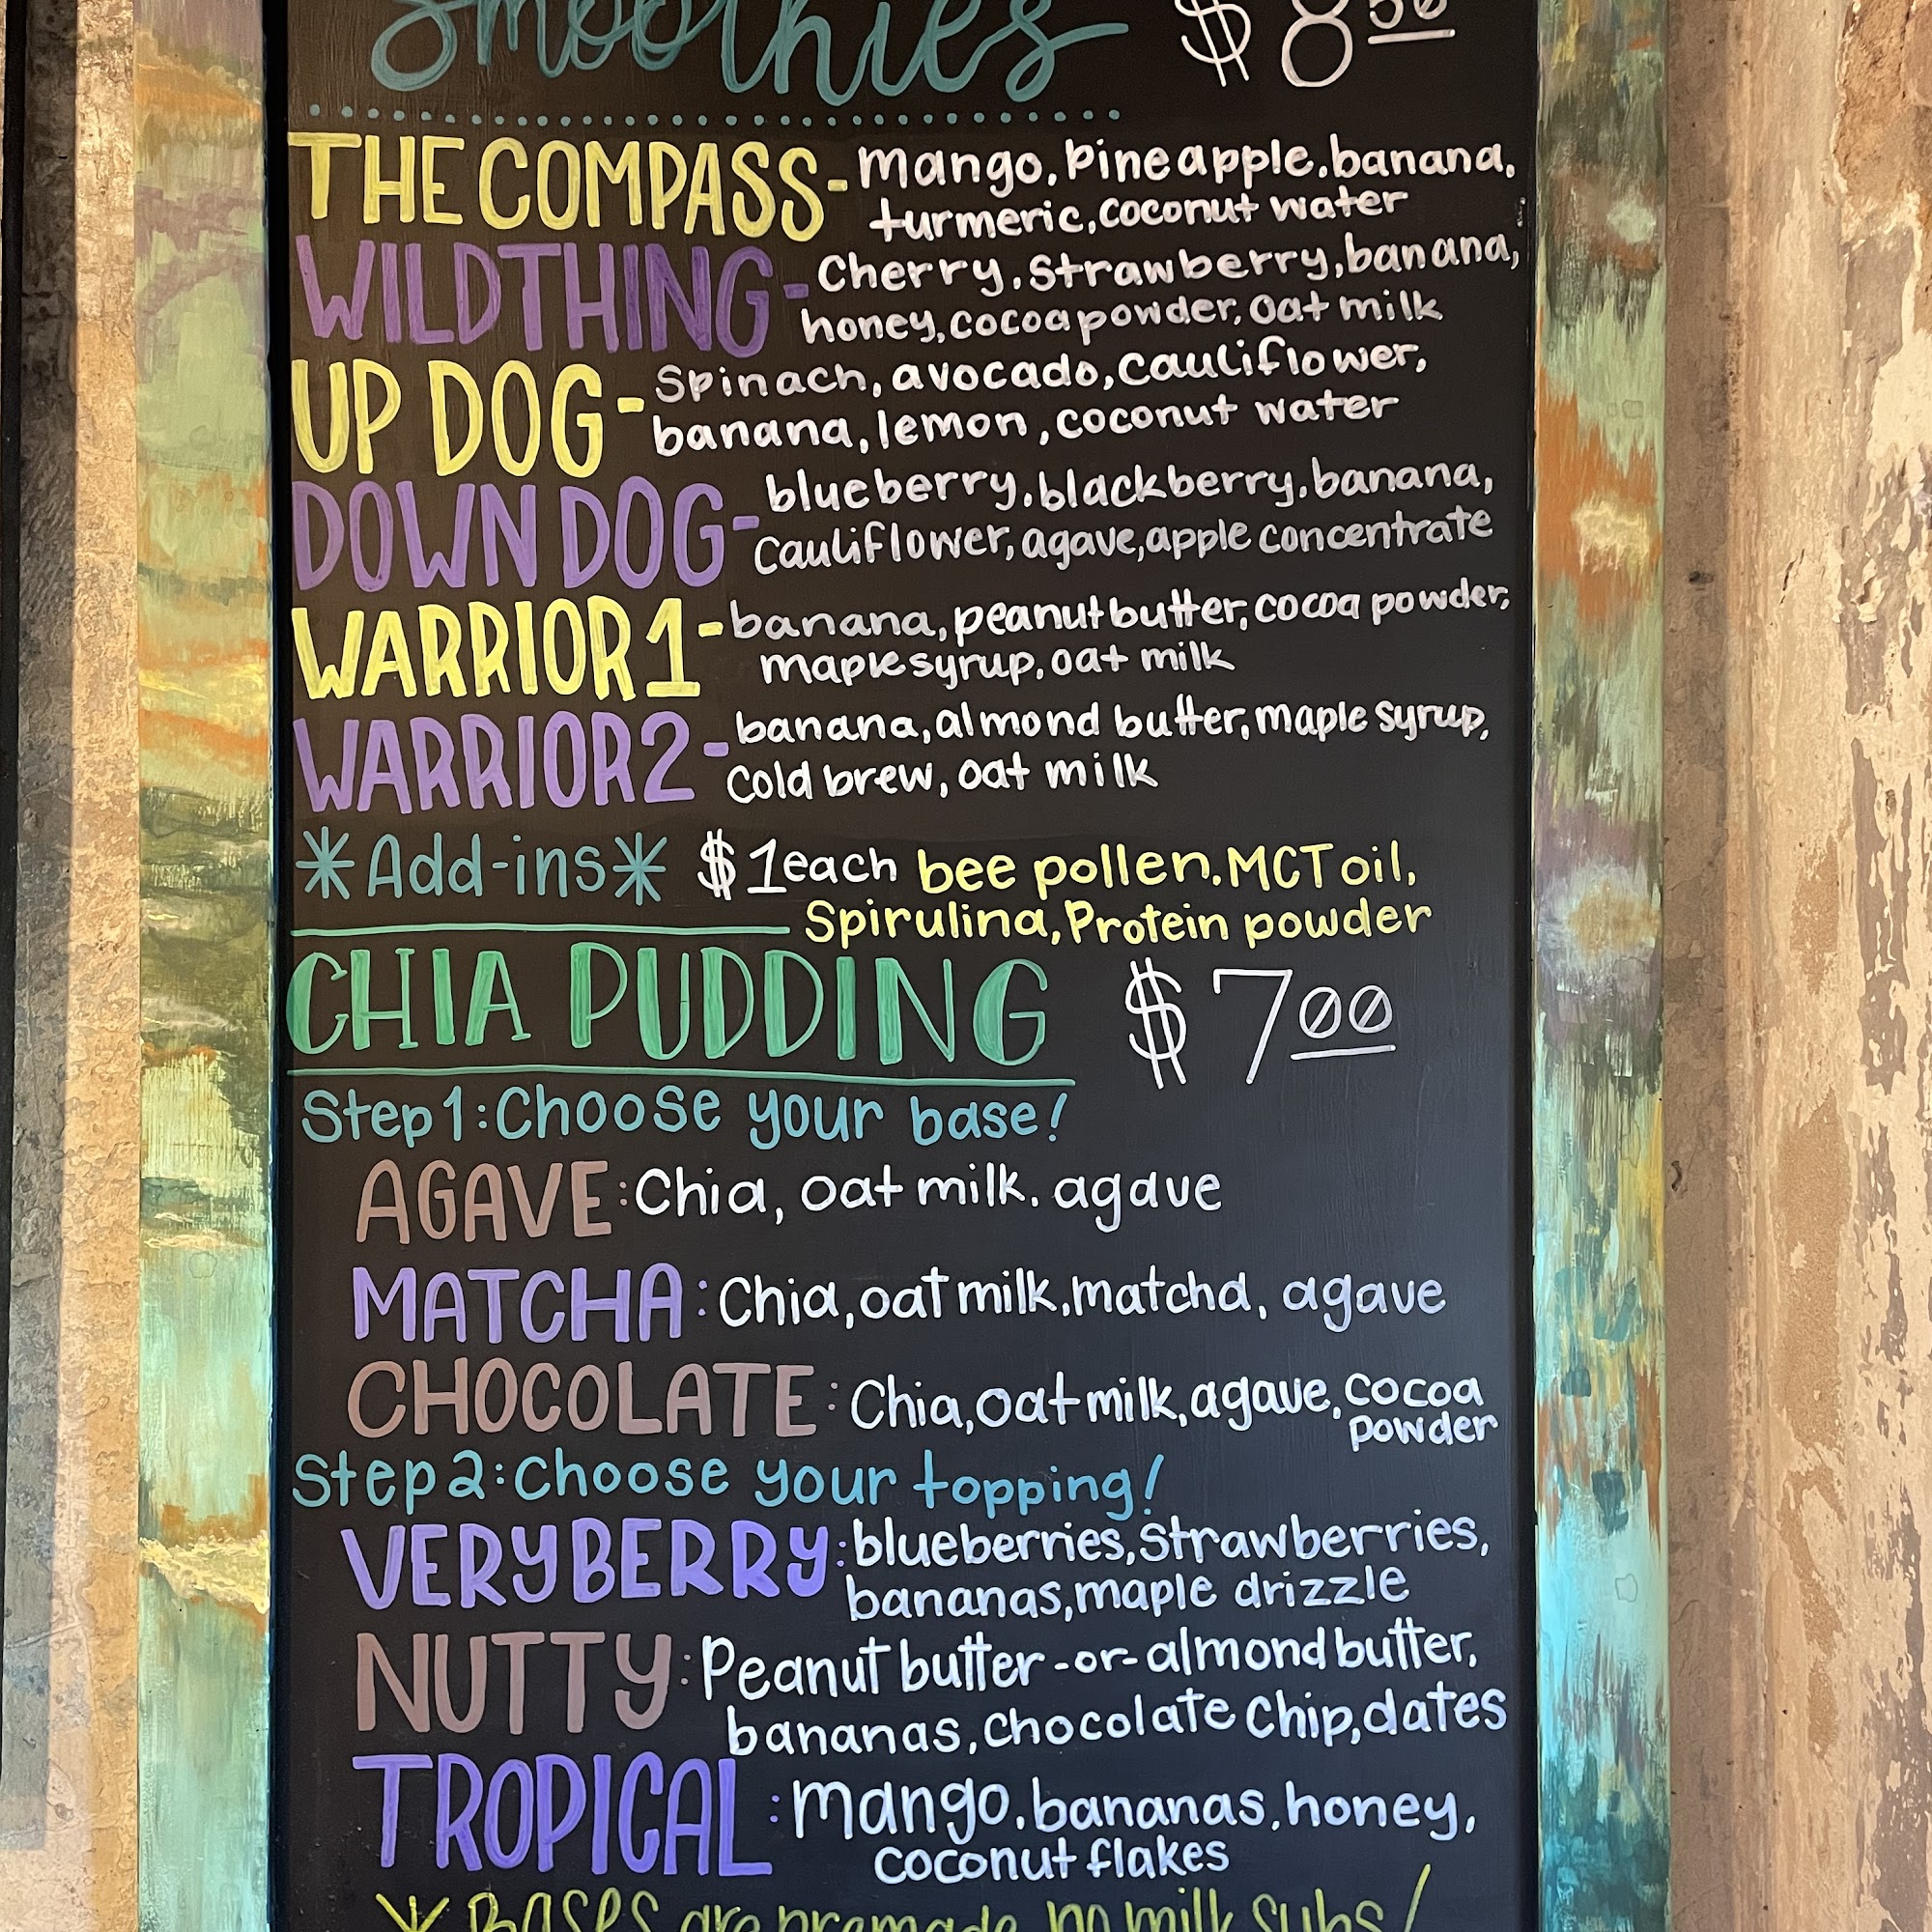 Smoothies $8.50
THE COMPASS- mango, pineapple, banana,
turmeric, coconut water
WILDTHING- Cherry, strawberry, banana,
honey, cocoa powder, oat milk
UP DOG- Spinach, avocado, cauliflower,
banana, lemon, coconut water
DOWN DOG- blueberry, blackberry, banana,
cauliflower, agave, apple concentrate
WARRIOR 1- banana, peanut butter, cocoa powder,
maple syrup, oat milk
WARRIOR 2- banana, almond butter, maple syrup,
cold brew, oat milk
*Add-ins* $1 each bee pollen, MCT oil,
Spirulina, Protein powder
CHIA PUDDING $7.00
Step 1: Choose your base!
AGAVE: Chia, oat milk, agave
MATCHA: Chia, oat milk, matcha, agave
CHOCOLATE: Chia, oat milk, agave, cocoa
powder
Step 2: Choose your topping!
VERY BERRY: blueberries, strawberries,
bananas, maple drizzle
NUTTY: Peanut butter -or- almond butter,
bananas, chocolate chip, dates
TROPICAL: mango, bananas, honey,
coconut flakes
* BASES are premade, no milk subs!